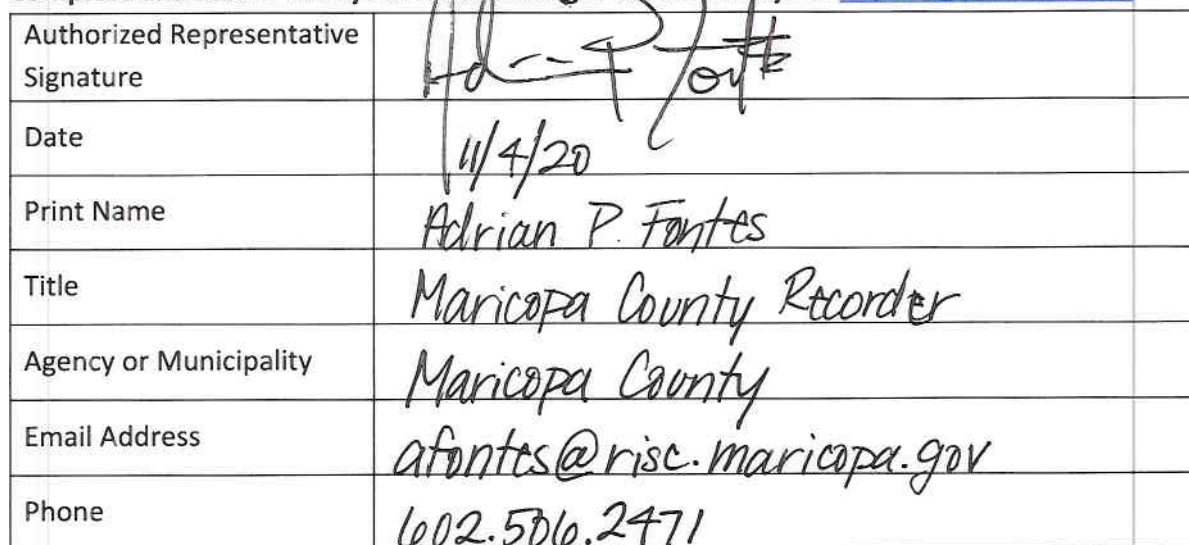 Authorized Representative
Signature
Adrian P Fontes
Date
11/4/20
Print Name
Adrian P. Fontes
Title
Maricopa County Recorder
Agency or Municipality
Maricopa County
Email Address
afontes@risc.maricopa.gov
Phone
602.506.2471